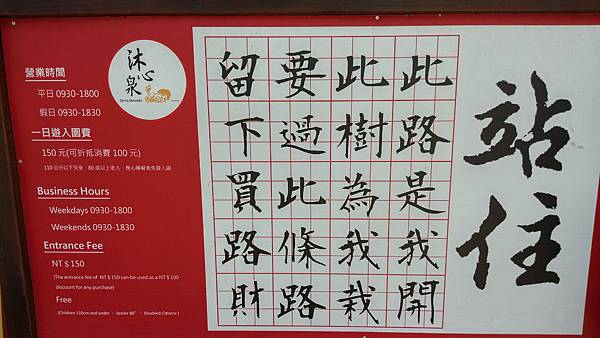 站住
此路是我開
此樹為我栽
要過此條路
留下買路財
沐心泉
Spring Mountain
營業時間
平日 0930-1800
假日 0930-1830
一日遊入園費
150 元(可折抵消費 100 元)
110 公分以下兒童、80 歲以上老人、身心障礙者免費入園
Business Hours
Weekdays 0930-1800
Weekends 0930-1830
Entrance Fee
NT$150
(The entrance fee of NT$150 can be used as a NT$100
discount for any purchase)
Free
(Children 110cm and under 、 Senior 80+ 、 Disabled Citizens )